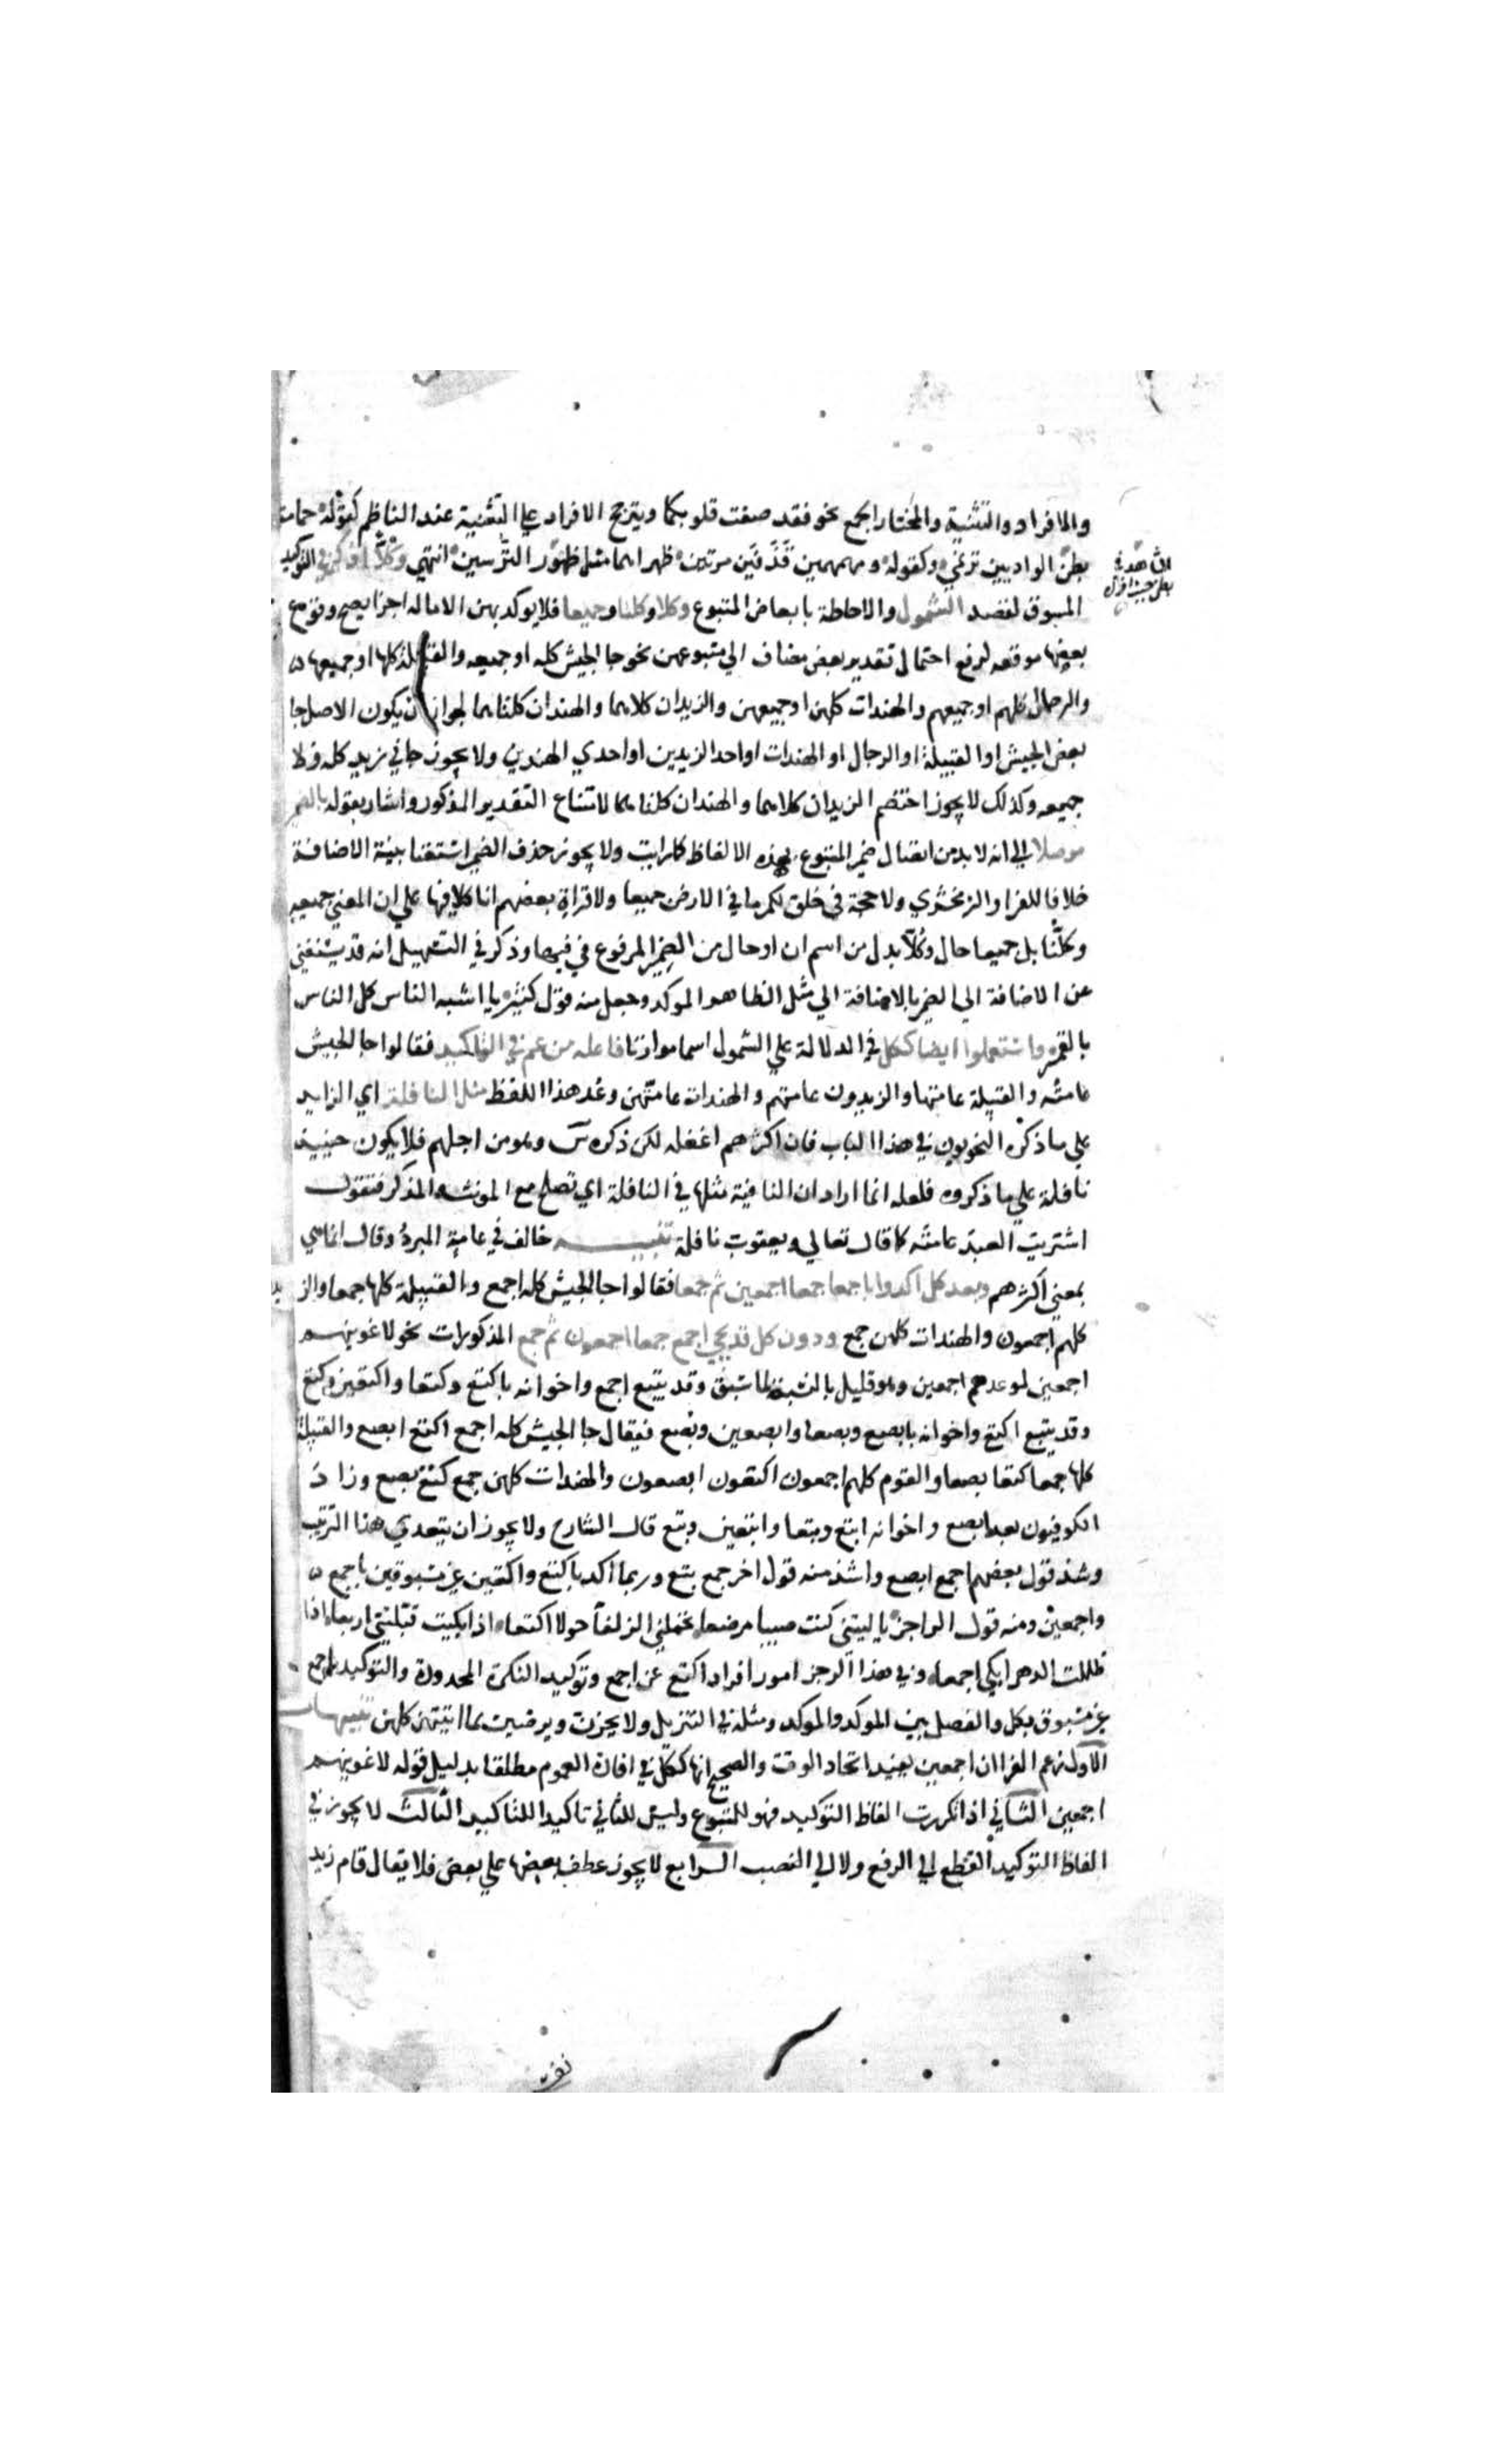 والافراد والتثنية والمختار الجمع نحو فقد صغت قلوبكما ويترجح الافراد علي التثنية عند الناظم كقوله حمامة
بطن الواديين ترنمي وكقوله ومهمهين قذفين مرتين ظهراهما مثل ظهور الترسين انتهي وكلا اذكر في التوكيد
المسوق لقصد الشمول والاحاطة بابعاض المتبوع وكلا وكلتا وجميعا فلا يوكد بهن الا ماله اجزا يصح وقوع
بعضها موقعه لرفع احتمال تقدير بعض مضاف الي متبوعهن نحو جا الجيش كله او جميعه والقبيلة كلها او جميعها
والرجال كلهم او جميعهم والهندات كلهن او جميعهن والزيدان كلاهما والهندان كلتاهما لجواز ان يكون الاصل جا
بعض الجيش او القبيلة او الرجال او الهندات او احد الزيدين او احدي الهندين ولا يجوز جاني زيد كله ولا
جميعه وكذلك لا يجوز اختصم الزيدان كلاهما والهندان كلتاهما لامتناع التقدير المذكور واشار بقوله بالضمير
موصلا الي انه لا بد من اتصال ضمير المتبوع بهذه الالفاظ كما رايت ولا يجوز حذف الضمير استغنا بنية الاضافة
خلافا للفرا والزمخشري ولا حجة في خلق لكم ما في الارض جميعا ولا قراة بعضهم انا كلا فيها علي ان المعني جميعه
وكلنا بل جميعا حال وكلا بدل من اسم ان او حال من الضمير المرفوع في فيها وذكر في التسهيل انه قد يستغني
عن الاضافة الي الضمير بالاضافة الي مثل الظاهر الموكد وجعل منه قول كثير يا اشبه الناس كل الناس
بالقمر واستعملوا ايضا ككل في الدلالة علي الشمول اسما موازنا فاعله من عم في التاكيد فقالوا جا الجيش
عامته والقبيلة عامتها والزيدون عامتهم والهندات عامتهن وعد هذا اللفظ مثل النافلة اي الزايد
علي ما ذكره النحويون في هذا الباب فان اكثرهم اغفله لكن ذكره س وهو من اجلهم فلا يكون حينيذ
نافلة علي ما ذكروه فلعله انما اراد ان التا فيه مثلها في النافلة اي تصلح مع المونث والمذكر فتقول
اشتريت العبد عامته كما قال تعالي ويعقوب نافلة تنبيه خالف في عامة المبرد وقال انما هي
بمعني اكثرهم وبعد كل اكدوا باجمعا جمعا اجمعين ثم جمعا فقالوا جا الجيش كله اجمع والقبيلة كلها جمعا والزيدون
كلهم اجمعون والهندات كلهن جمع ودون كل قد يجي اجمع جمعا اجمعون ثم جمع المذكورات نحو لاغوينهم
اجمعين لموعدهم اجمعين وهو قليل بالنسبة لما سبق وقد يتبع اجمع واخواته باكتع وكتعا واكتعين وكتع
وقد يتبع اكتع واخواته بابصع وبصعا وابصعين وبصع فيقال جا الجيش كله اجمع اكتع ابصع والقبيلة
كلها جمعا كتعا بصعا والقوم كلهم اجمعون اكتعون ابصعون والهندات كلهن جمع كتع بصع وزاد
الكوفيون بعد ابصع واخواته ابتع وبتعا وابتعين وبتع قال الشارح ولا يجوز ان يتعدي هذا الترتيب
وشذ قول بعضهم اجمع ابصع واشذ منه قول اخر جمع بتع وربما اكد باكتع واكتعين غير مسبوقين باجمع
واجمعين ومنه قول الراجز يا ليتني كنت صبيا مرضعا تحملني الذلفا حولا اكتعا اذا بكيت قبلتني اربعا اذا
ظللت الدهر ابكي اجمعا وفي هذا الرجز امور افراد اكتع عن اجمع وتوكيد النكرة المحدودة والتوكيد باجمع
غير مسبوق بكل والفصل بين الموكد والموكد ومثله في التنزيل ولا يحزن ويرضين بما اتيتهن كلهن تنبيهات
الاول زعم الفرا ان اجمعين يفيد اتحاد الوقت والصحيح انها ككل في افادة العموم مطلقا بدليل قوله لاغوينهم
اجمعين الثاني اذا تكررت الفاظ التوكيد فهو للمتبوع وليس للثاني تاكيدا للتاكيد الثالث لا يجوز في
الفاظ التوكيد القطع الي الرفع ولا الي النصب الرابع لا يجوز عطف بعضها علي بعض فلا يقال قام زيد